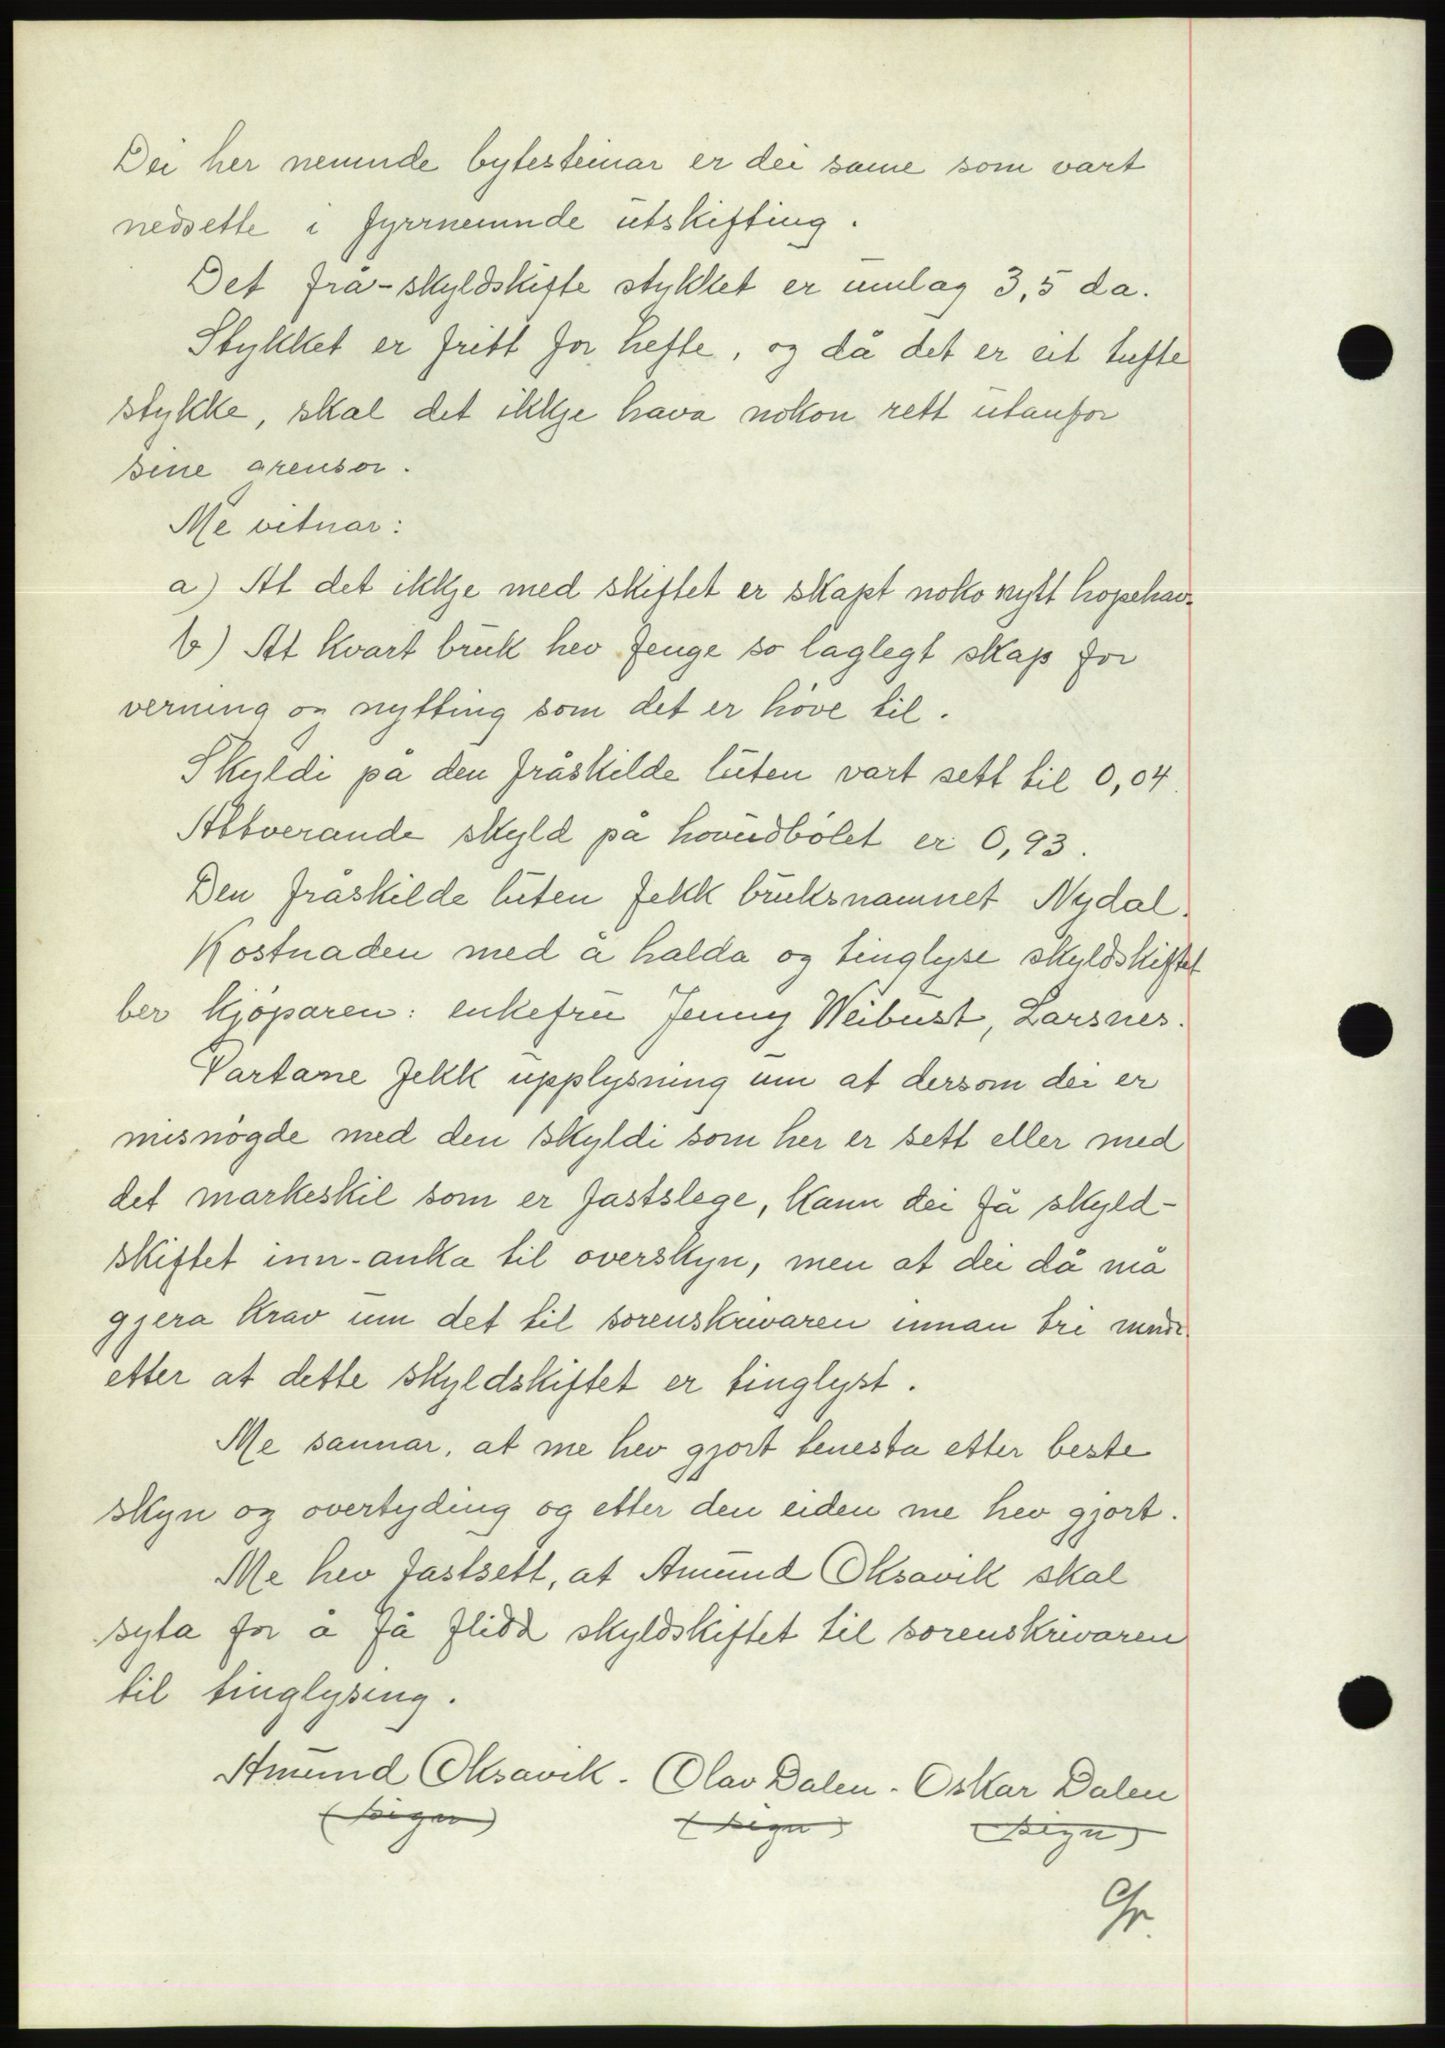 Dei her nemnde bytesteinar er dei same som vart
nedsette i fyrrnemnde utskifting.
Det frå-skyldskifte stykket er umlag 3,5 da.
Stykket er fritt for hefte, og då det er eit tufte
stykke, skal det ikkje hava nokon rett utanfor
sine grensor.
Me vitnar:
a) At det ikkje med skiftet er skapt noko nytt hopehav.
b) At kvart bruk hev fenge so laglegt skap for
verning og nytting som det er höve til.
Skyldi på den fråskilde luten vart sett til 0,04.
Attverande skyld på hovudbölet er 0,93.
Den fråskilde luten fekk bruksnamnet Nydal.
Kostnaden med å halda og tinglyse skyldskiftet
ber kjöparen: enkefru Jenny Weibust, Larsnes.
Partane fekk upplysning um at dersom dei er
misnögde med den skyldi som her er sett eller med
det markeskil som er fastslege, kann dei få skyld-
skiftet inn-anka til overskyn, men at dei då må
gjera krav um det til sorenskrivaren innan tri mndr.
etter at dette skyldskiftet er tinglyst.
Me sannar, at me hev gjort tenesta etter beste
skyn og overtyding og etter den eiden me hev gjort.
Me hev fastsett, at Amund Oksavik skal
syta for å få flidd skyldskiftet til sorenskrivaren
til tinglysing.
Amund Oksavik. Olav Dalen. Oskar Dalen
(sign) (sign) (sign)